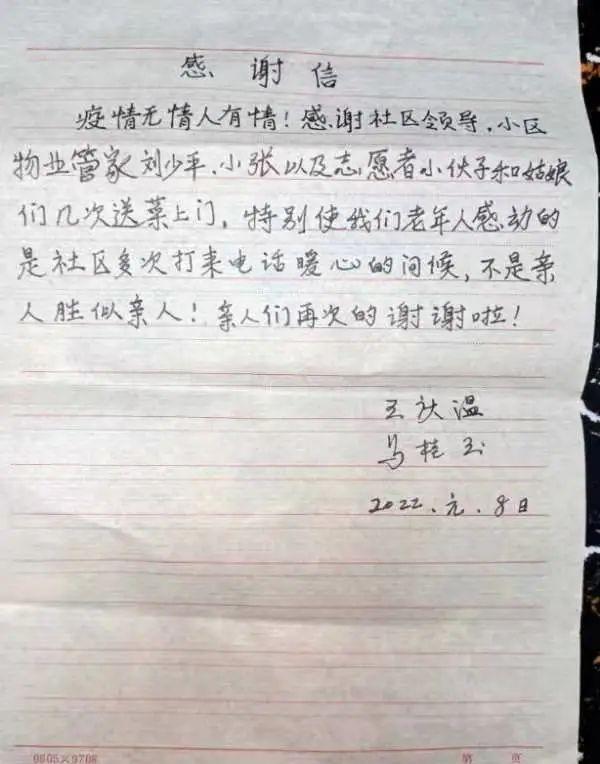 感谢信
疫情无情人有情！感谢社区领导、小区
物业管家刘少平、小张以及志愿者小伙子和姑娘
们几次送菜上门，特别使我们老年人感动的
是社区多次打来电话暖心的问候，不是亲
人胜似亲人！亲人们再次的谢谢啦！
王
马桂玉
2022.元.8日
0805×9708
第 页